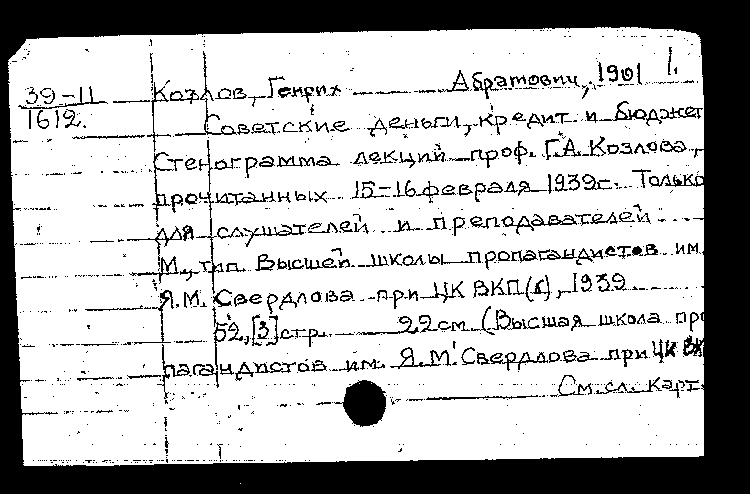 39-11 Козлов, Генрих Абрамович, 1901 1.
1612. Советские деньги, кредит и бюджет
Стенограмма лекций проф. Г.А. Козлова,
прочитанных 15-16 февраля 1939г. Только
для слушателей и преподавателей.
М., тип. Высшей школы пропагандистов им.
Я.М. Свердлова при ЦК ВКП(б), 1939
52, [3] стр. 22 см (Высшая школа про
пагандистов им. Я.М. Свердлова при ЦК ВК
См. сл. карт.